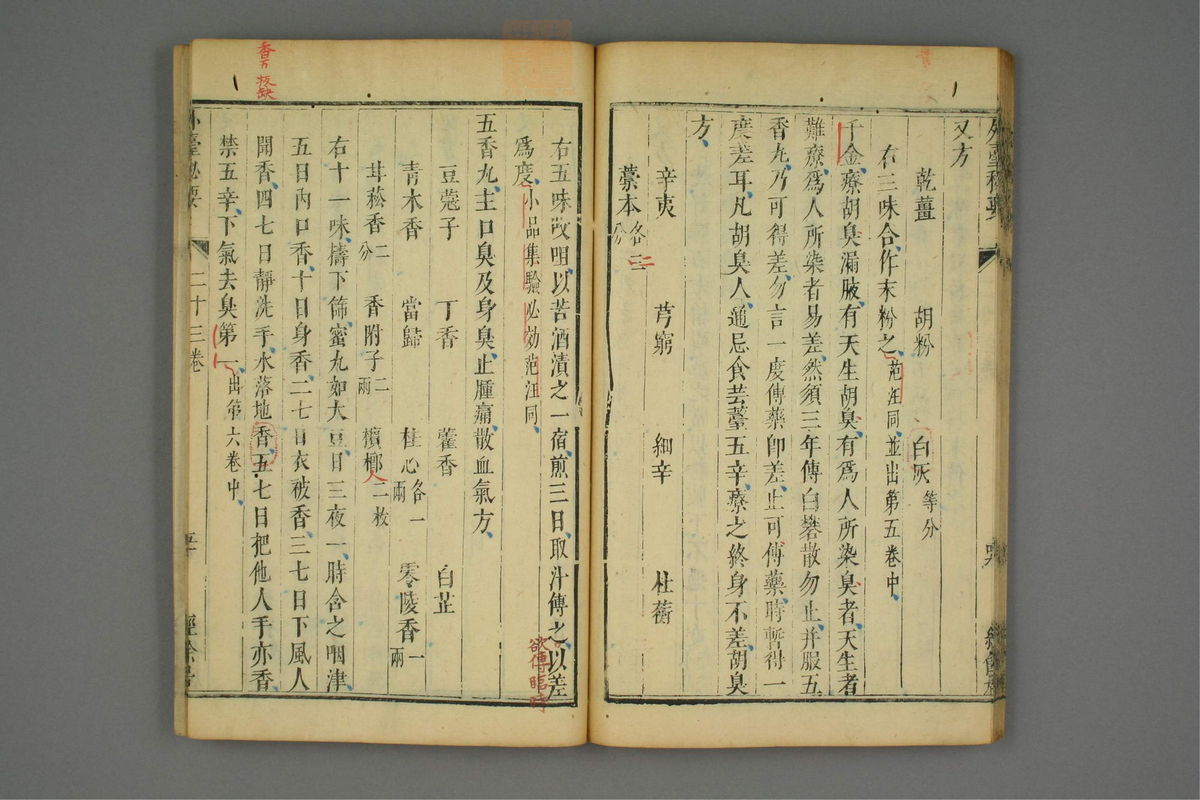 又方
乾薑　胡粉　白灰等分
右三味合作末粉之范汪同並出第五卷中
千金療胡臭漏腋有天生胡臭有爲人所染臭者天生者
難療爲人所染者易差然須三年傅白礬散勿止并服五
香丸乃可得差勿言一度傅藥即差止可傅藥時暫得一
度差耳凡胡臭人通忌食芸薹五辛療之終身不差胡臭
方
辛夷　芎藭　細辛　杜蘅
藁本各二分
右五味㕮咀以苦酒漬之一宿煎三日取汁傅之以差
欲傅臨時
爲度小品集驗必効范汪同
五香丸主口臭及身臭止腫痛散血氣方
豆蔻子　丁香　藿香　白芷
青木香　當歸　桂心各一兩　零陵香一兩
甘菘香二分　香附子二兩　檳榔二枚
右十一味擣下篩蜜丸如大豆日三夜一時含之咽津
五日內口香十日身香二七日衣被香三七日下風人
聞香四七日靜洗手水落地香五七日把他人手亦香
禁五辛下氣去臭第一出第六卷中
外臺秘要　二十三卷